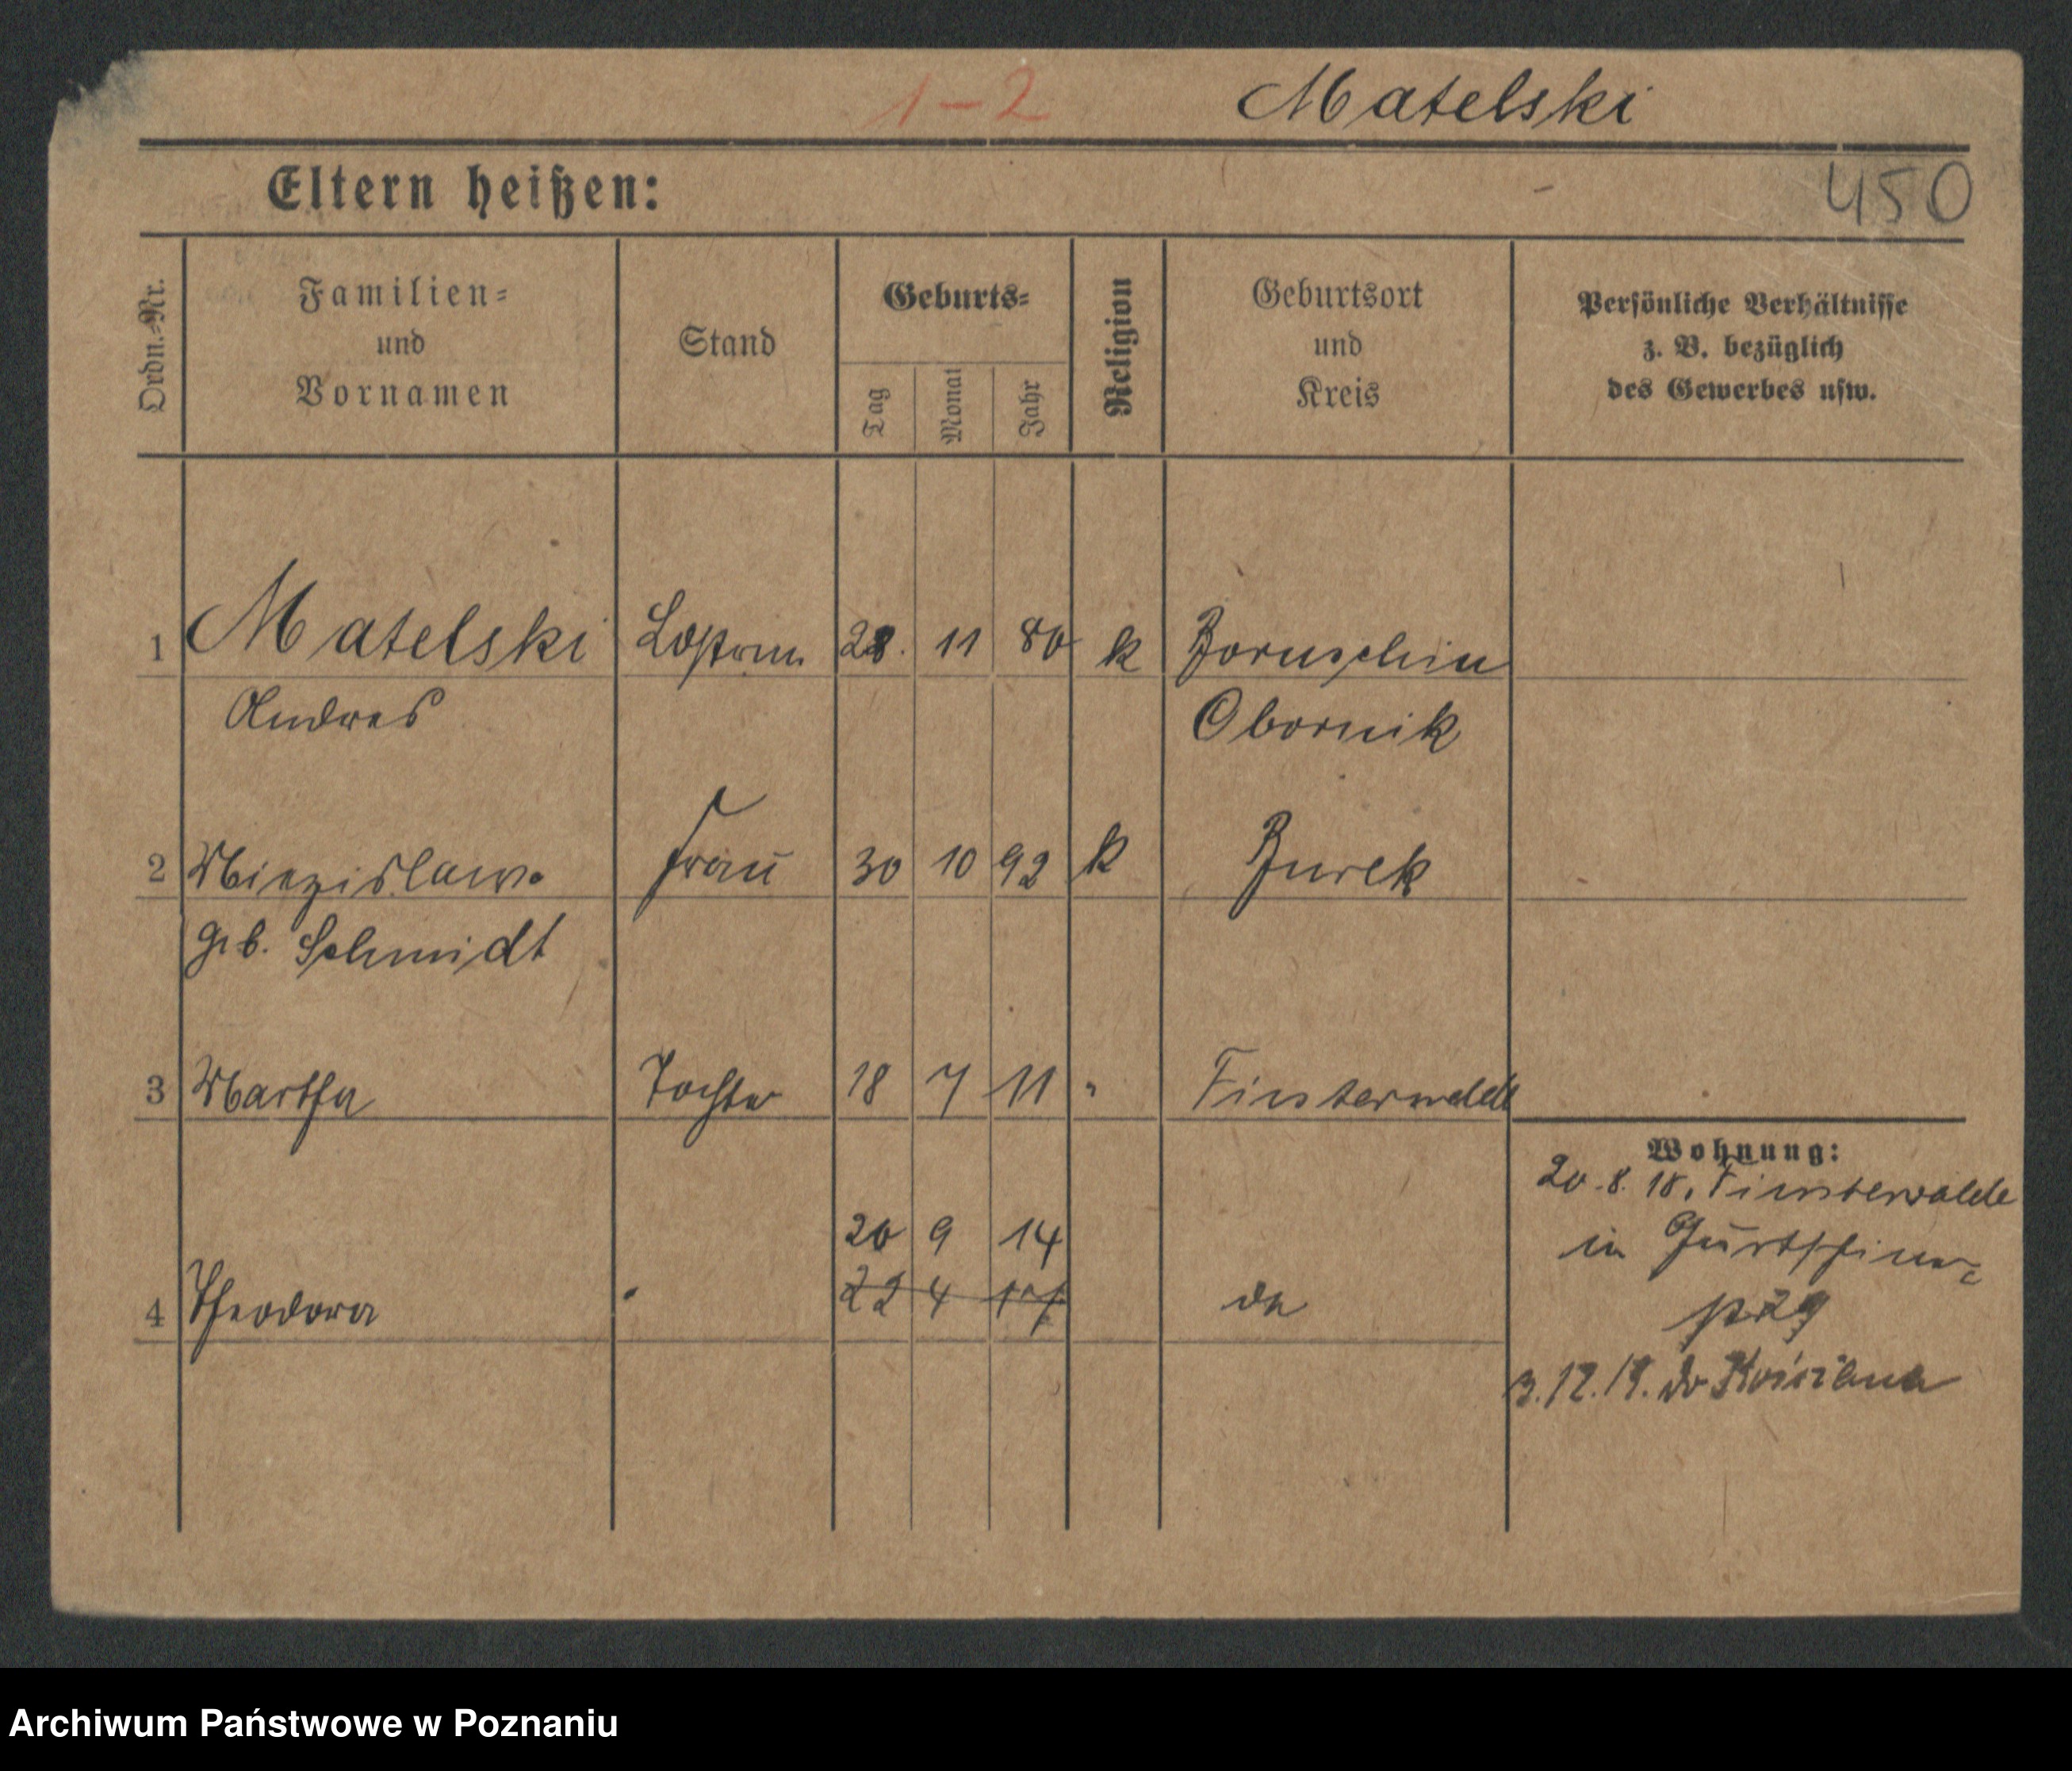 1-2 Matelski
Eltern heißen:
450
Ordn.-Nr.
Familien-
und
Vornamen
Stand
Geburts-
Tag
Monat
Jahr
Religion
Geburtsort
und
Kreis
Persönliche Verhältnisse
z. B. bezüglich
des Gewerbes usw.
1 Matelski 28. 11 80 k
Andreas Obornik
2 Miezislawa Frau 30 10 92 k Zurek
geb. Schmidt
3 Martha Tochter 18 7 11 " Finsterwalde
Wohnung:
20.8.18. Finsterwalde
20 9 14
in
4 Theodora " 22 4 17 do
3.12.19. do
Archiwum Państwowe w Poznaniu